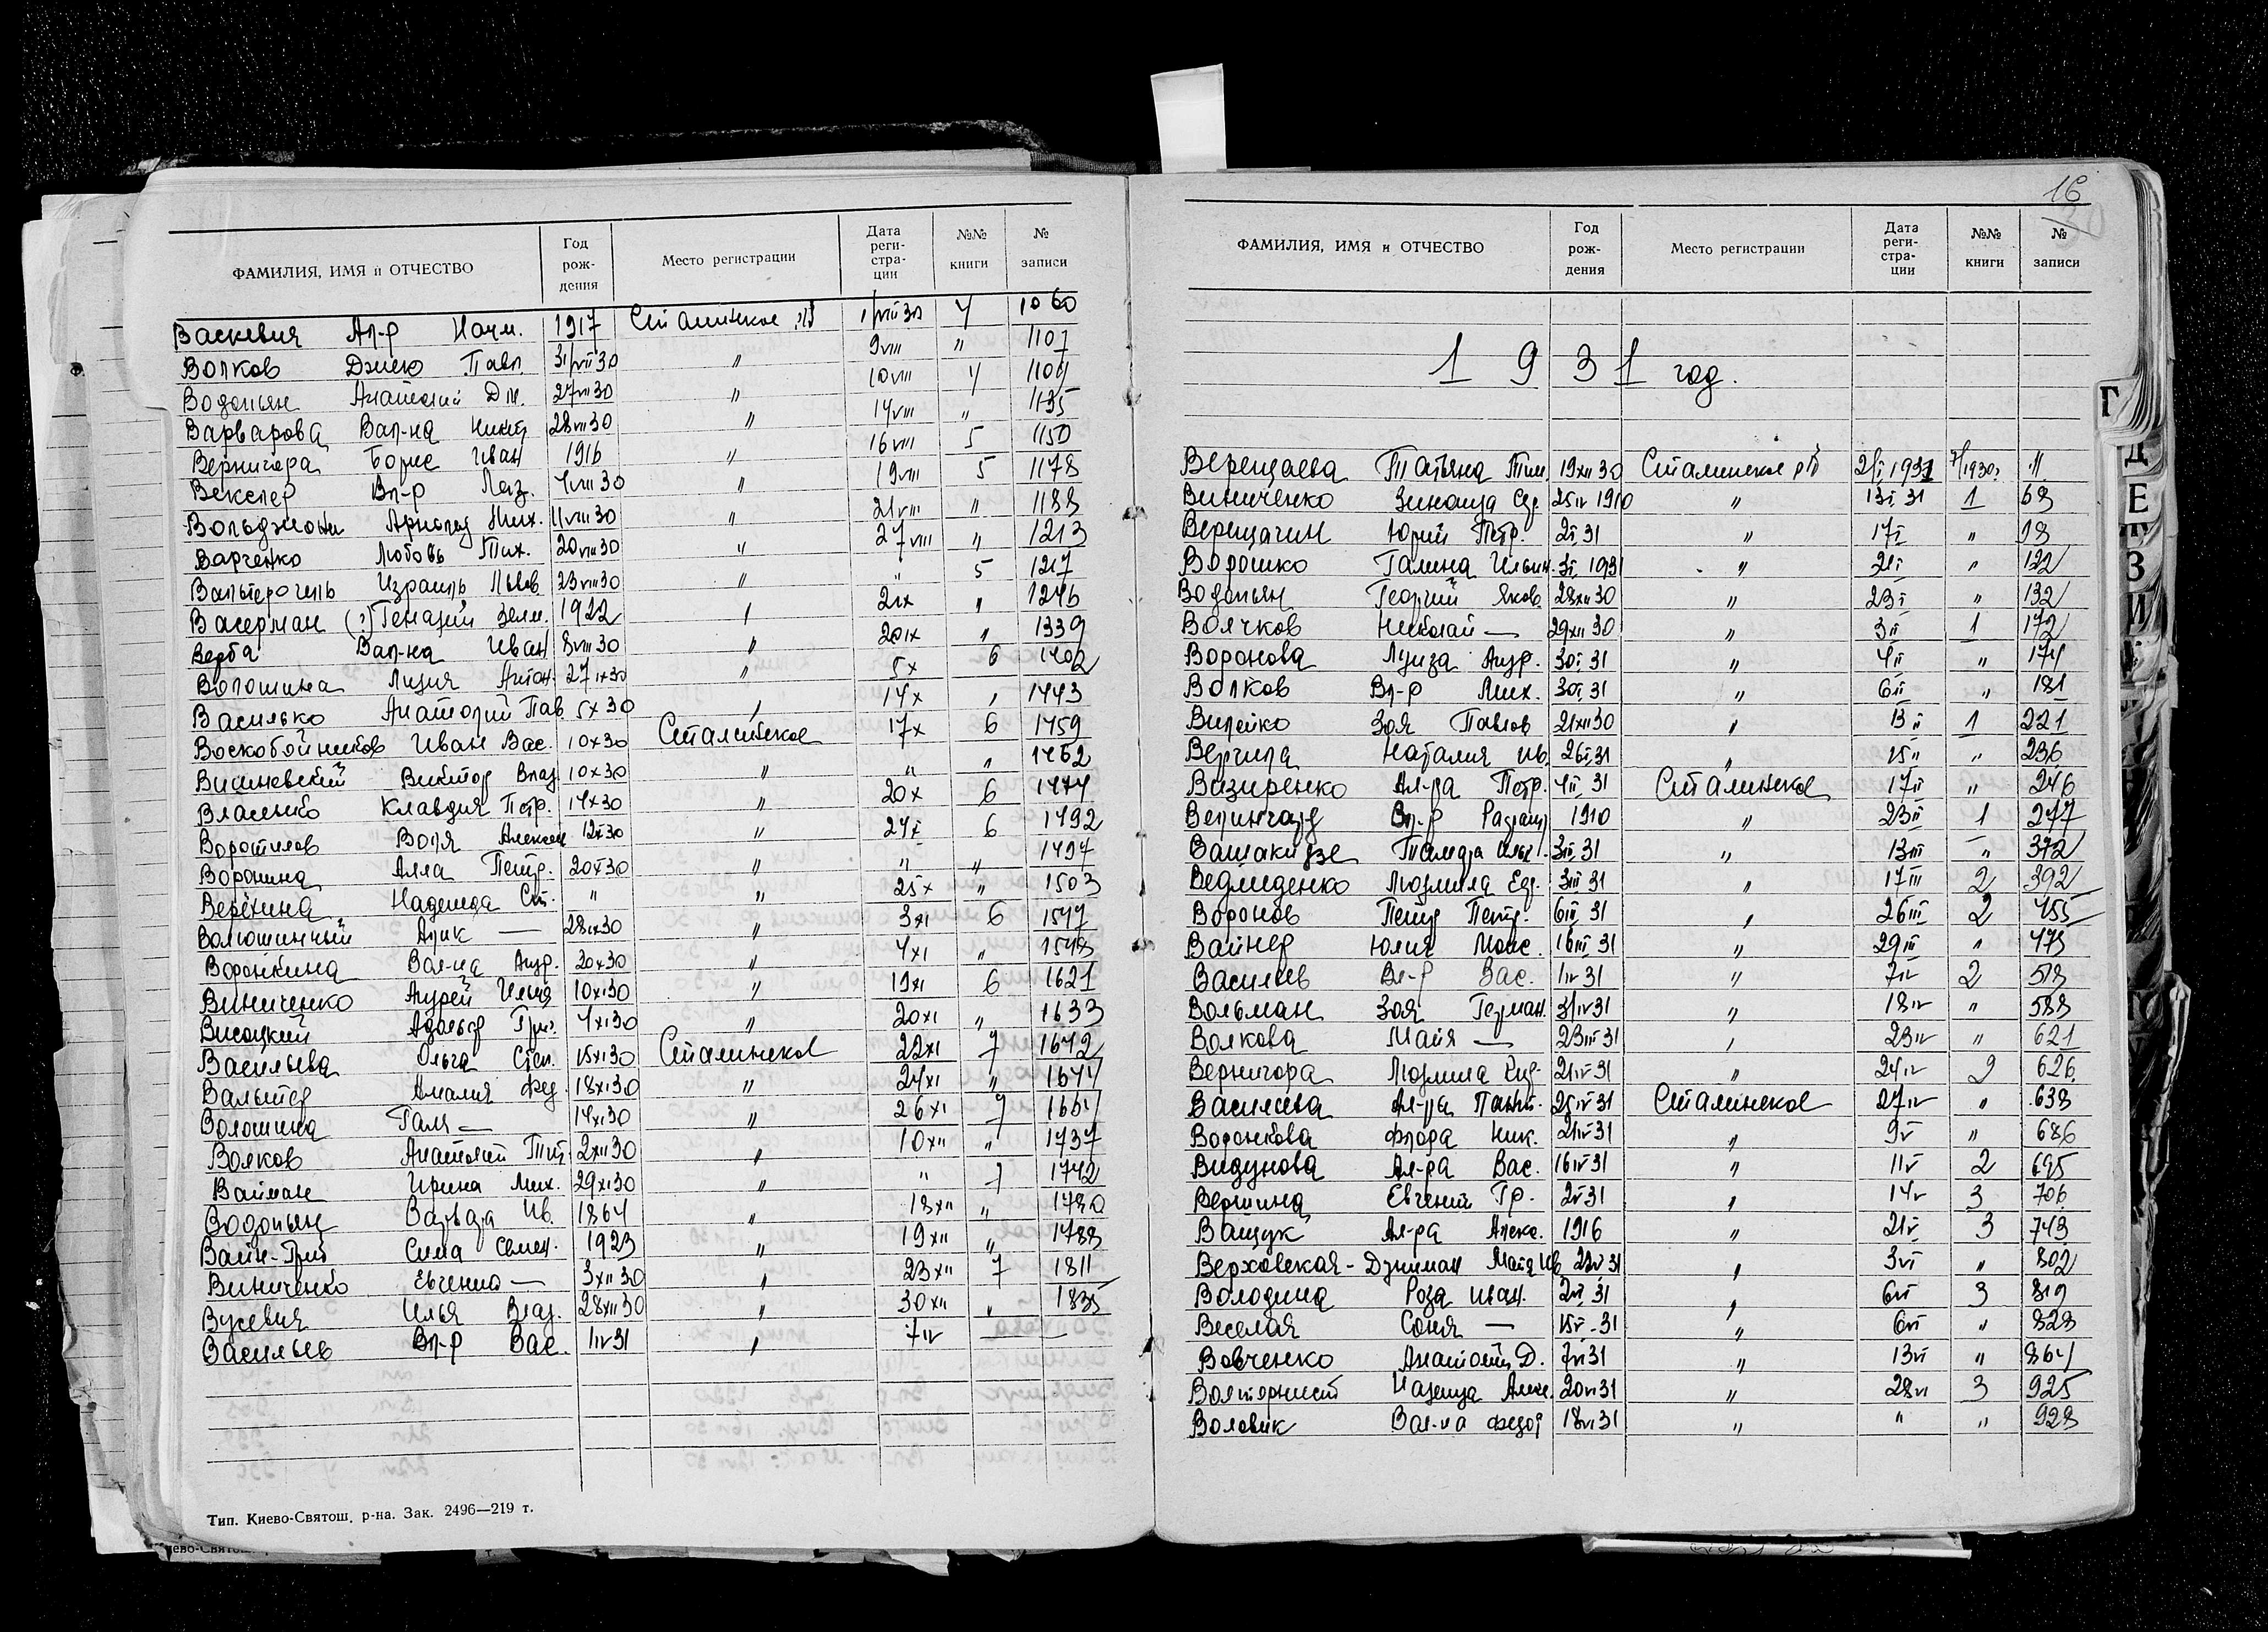 ФАМИЛИЯ, ИМЯ и ОТЧЕСТВО Год рож- дения Место регистрации Дата реги- стра- ции №№ книги № записи
Васкевич Ал-р 1917 Сталинское 1/VIII 30 4 1060
Волков Павл. 31/VII 30 " 9 VIII " 1107
Водопьян Анатолий Дм. 27 VII 30 " 10 VIII 4 1109
Варварова Вал-на 28 VII 30 " 14 VIII " 1135
Вернигора Борис Иван 1916 " 16 VIII 5 1150
Векслер Вл-р Лаз. 4 VIII 30 " 19 VIII 5 1178
Арнольд Мих. 11 VIII 30 " 21 VIII " 1188
Варченко Любовь Тих. 20 VIII 30 " 27 VIII " 1213
Израиль Львов 23 VIII 30 " " 5 1217
Васерман (?) Зелм. 1922 " 2 IX " 1246
Верба Вал-на Иван 8 VIII 30 " 20 IX " 1339
Волошина Лидия Антон. 27 IX 30 " 5 X 6 1402
Василько Анатолий Пав. 5 X 30 " 14 X " 1443
Воскобойников Иван Вас. 10 X 30 Сталинское 17 X 6 1459
Вишневский Виктор Влад. 10 X 30 " " " 1462
Власенко Клавдия Петр. 14 X 30 " 20 X 6 1474
Воротилов Воля Алексеев 12 X 30 " 24 X 6 1492
Воронина Алла Петр. 20 X 30 " " " 1494
Верёхина Надежда Ст. " " 25 X " 1503
Алик — 28 IX 30 " 3 XI 6 1547
Воронкина Вал-на Андр. 20 X 30 " 4 XI " 1548
Виниченко Андрей 10 XI 30 " 19 XI 6 1621
Висоцкий Адольф Григ. 4 XI 30 " 20 XI " 1633
Васильева Ольга Степ. 15 XI 30 Сталинское 22 XI 7 1642
Вальтер Амалия Фед. 18 XI 30 " 24 XI " 1644
Волошина Галя — 14 XI 30 " 26 XI 7 1657
Волков Анатолий 2 XII 30 " 10 XII " 1737
Вайман Ирина Мих. 29 XI 30 " " 7 1742
Водопьян Варвара Ив. 1864 " 18 XII " 1780
Сима Семен. 1923 " 19 XII " 1788
Виниченко Евгения — 3 XII 30 " 23 XII 7 1811
Вусевич Илья Влад. 28 XII 30 " 30 XII " 1835
Васильев Вл-р Вас. 1 IV 31 " 7 IV —
Тип. Киево-Святош. р-на. Зак. 2496—219 т.
16
ФАМИЛИЯ, ИМЯ и ОТЧЕСТВО Год рож- дения Место регистрации Дата реги- стра- ции №№ книги № записи
1931 год.
Верещаева Татьяна Тим. 19 XII 30 Сталинское 2/I 1931 7/1930г. 11
Виниченко Зинаида Ед. 25 IV 1910 " 13 I 31 1 68
Верещагин Юрий Петр. 2 I 31 " 17 I " 98
Ворошко Галина Ильин. 3 I 1931 " 21 I " 122
Водопьян Георгий Яков. 28 XII 30 " 23 I " 132
Волчков Николай — 29 XII 30 " 3 II 1 172
Воронова Луиза Андр. 30 I 31 " 4 II " 174
Волков Вл-р Мих. 30 I 31 " 6 II " 181
Вилейко Зоя Павлов 21 XII 30 " 13 II 1 221
Вергила Наталия Ив. 26 I 31 " 15 II " 236
Визиренко Ал-ра Петр. 4 II 31 Сталинское 17 II " 246
Вл-р 1910 " 23 II 1 277
Вашакидзе Тамара 3 III 31 " 13 III " 372
Ведмиденко Людмила Ед. 3 III 31 " 17 III 2 392
Воронов Петр Петр. 6 III 31 " 26 III 2 455
Вайнер Юлия Моис. 16 III 31 " 29 III " 478
Васильев Вл-р Вас. 1 IV 31 " 7 IV 2 518
Вольман Зоя Герман. 31 IV 31 " 18 IV " 588
Волкова Майя — 23 III 31 " 23 IV " 621
Вернигора Людмила 21 IV 31 " 24 IV 2 626
Василева Ал-ра 25 IV 31 Сталинское 27 IV " 638
Воронкова Флора Ник. 21 IV 31 " 9 V " 686
Видунова Ал-ра Вас. 16 IV 31 " 11 V 2 695
Вершина Евгений Гр. 2 V 31 " 14 V 3 706
Ващук Ал-ра Алекс. 1916 " 21 V 3 743
Верховская-Дзиман Майя Ив 22 V 31 " 3 VI " 802
Володина Роза Иван. 2 VI 31 " 6 VI 3 819
Веселая Соня — 15 V 31 " 6 VI " 828
Вовченко Анатолий Д. 7 VI 31 " 13 VI " 864
Надежда Алекс. 20 VI 31 " 28 VI 3 925
Воловик Вал-на Федор 18 VI 31 " " " 928
Г
Д
Е
З
И